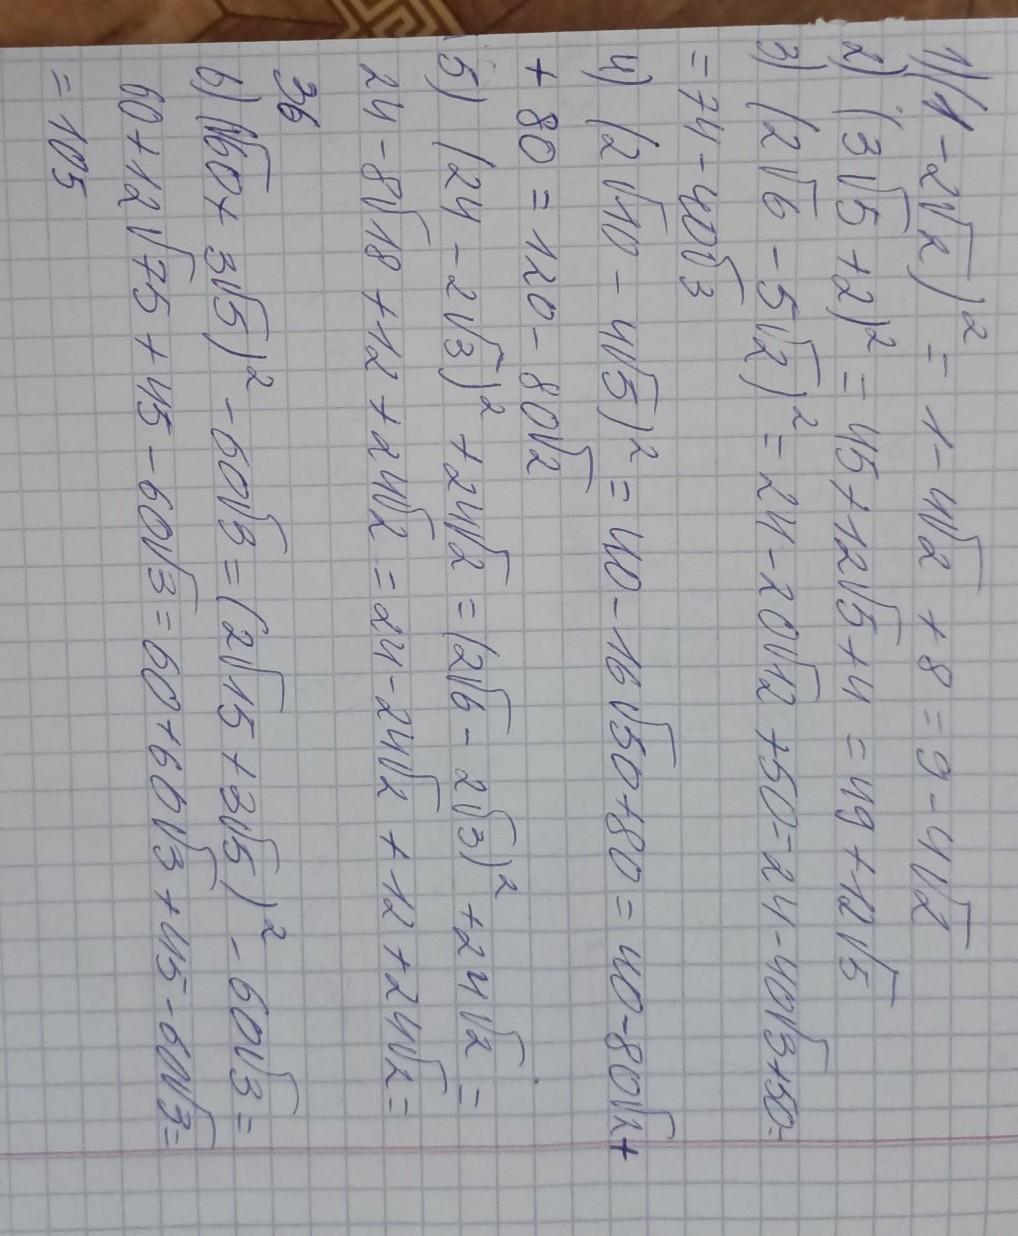 1) (1-2√2)² = 1-4√2+8=9-4√2
2) (3√5+2)² = 45+12√5+4=49+12√5
3) (2√6-5√2)² = 24-20√12+50=24-40√3+50=
=74-40√3
4) (2√10-4√5)² = 40-16√50+80=40-80√2+
+80=120-80√2
5) (24-2√3)²+24√2=(2√6-2√3)²+24√2=
24-8√18+12+24√2=24-24√2+12+24√2=
36
6) (√60+3√5)²-60√3=(2√15+3√5)²-60√3=
60+12√75+45-60√3=60+60√3+45-60√3=
=105